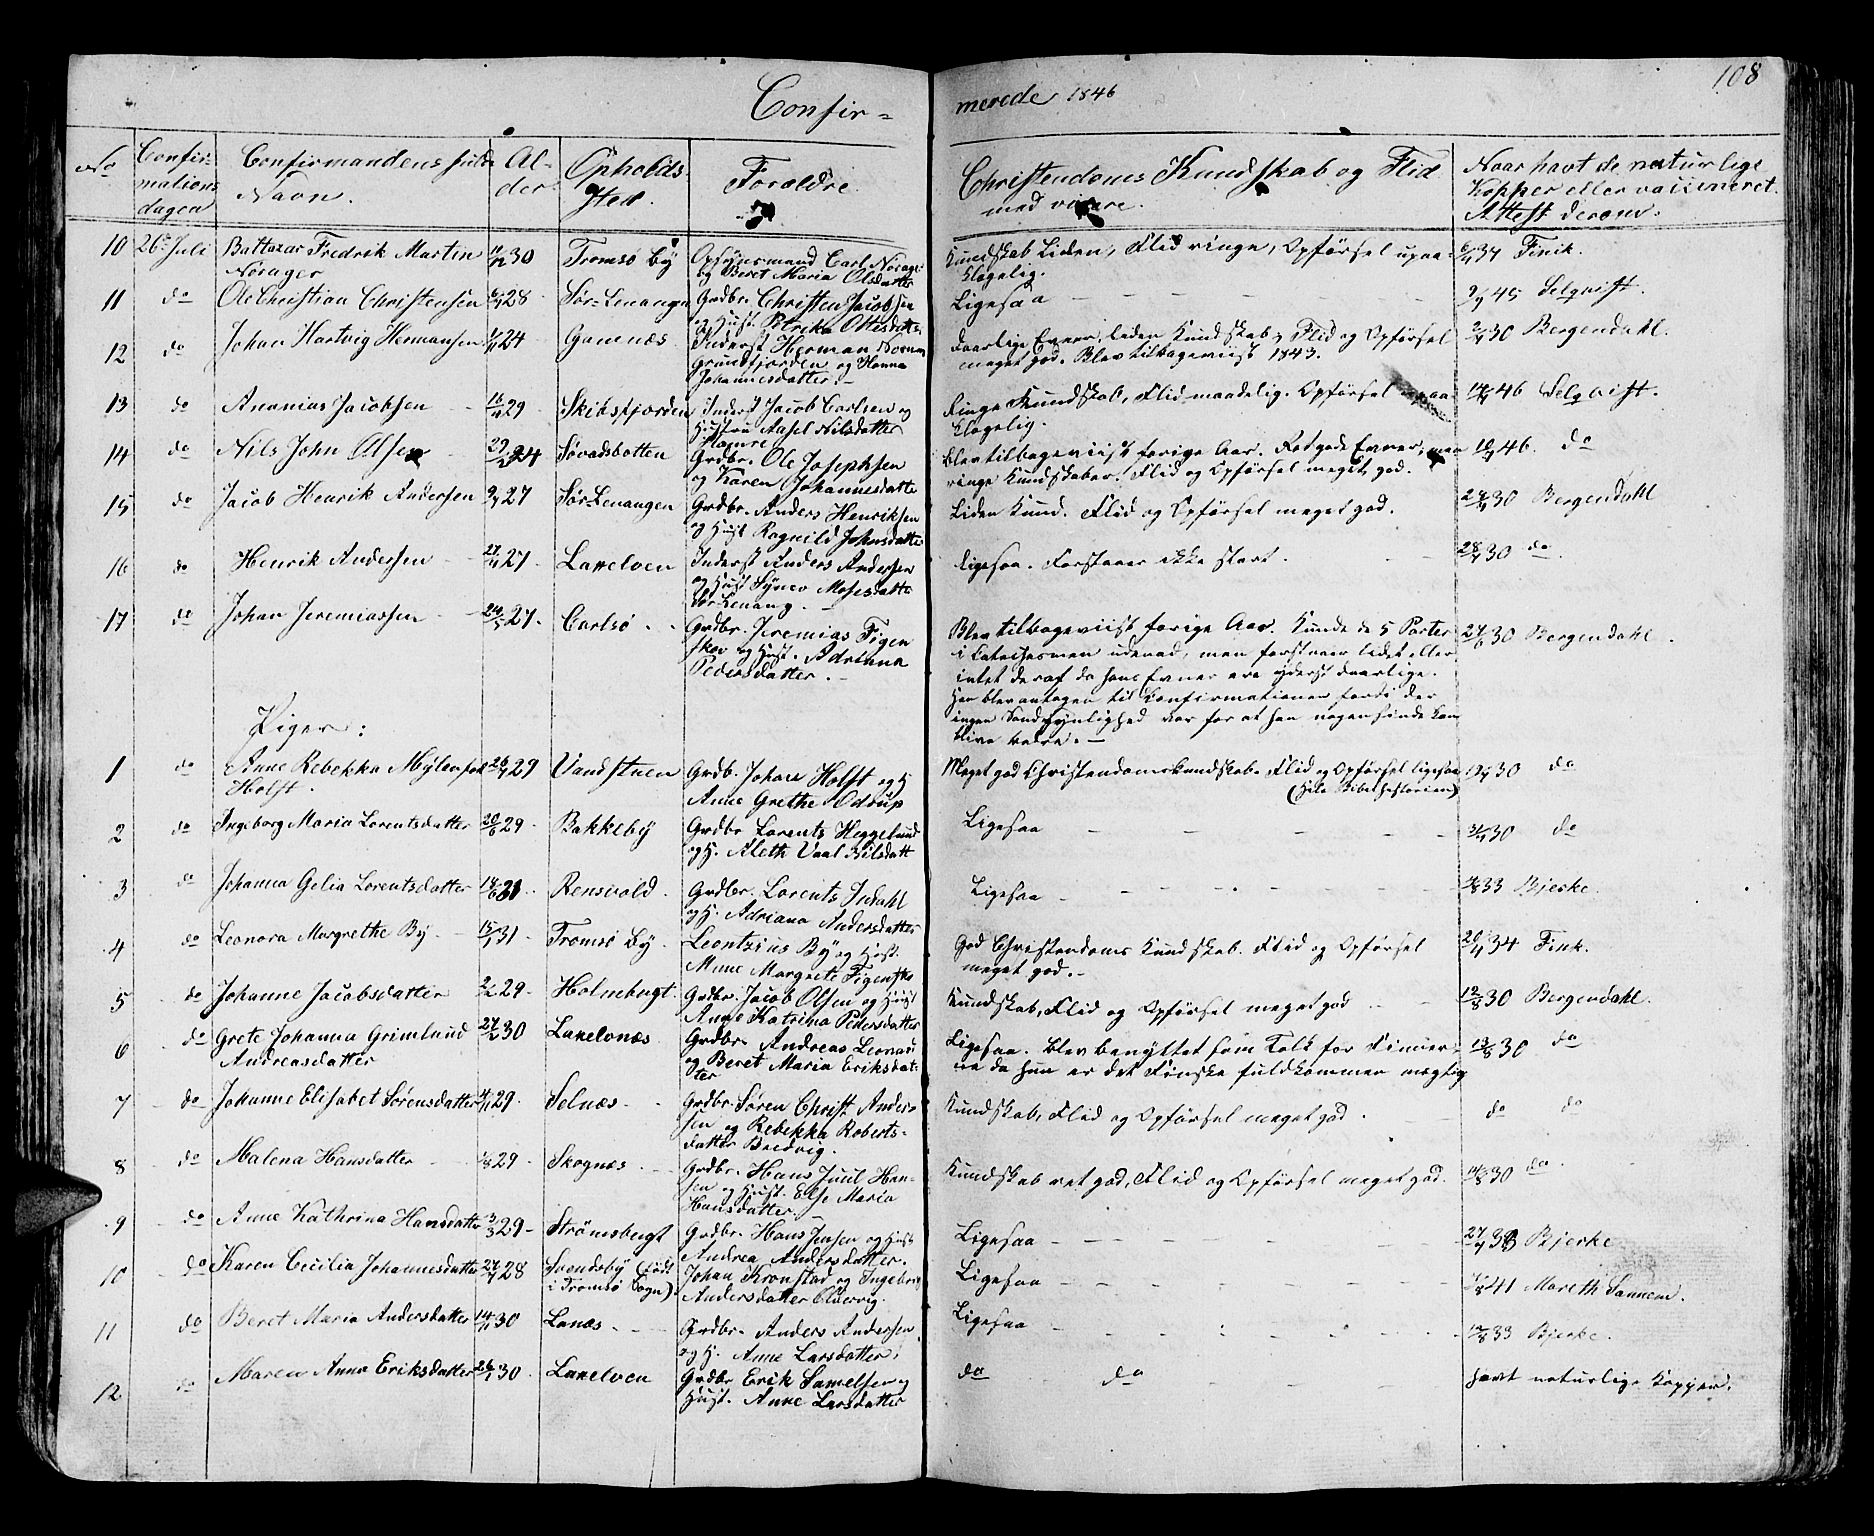 108
Confir=
merede 1846
No
Confir-
mations
dagen
Confirmandens fulde
Navn.
Al-
der
Opholds
Sted.
Forældre.
Christendoms Kundskab og Flid
med videre.
Naar havt de naturlige
Kopper eller vaccineret.
Attest derom.
10 26de Juli Baltazar Fredrik Martin 30 Tromsø By Opsynsmand Carl Norager
Norager og Beret Maria Olsdatter
Kundskab Liden, Flid ringe, Opførsel upaa-
klagelig.
34 Fink.
11 do Ole Christian Christensen 28 Sør-Lenangen Grdbr. Christen Jacobsen
og Hust. Petrika Ottisdatter
Ligesaa
9/9 45 Selqvist.
12 do Johan Hartvig Hermansen 24 Gamnæs Inderst Herman Norum
Grundfjorden og Hanna
Johannesdatter.
Daarlige Evner, liden Kundskab, Flid og Opførsel
meget god. Blev tilbageviist 1843.
30 Bergendahl.
13 do Ananias Jacobsen 29 Skibsfjorden Inderst Jacob Carlsen og
Hustru Aasel Nilsdatter
Hamre
Ringe Kundskab, Flid maadelig. Opførsel upaa
klagelig.
46 Selqvist.
14 do Nils John Olsen 24 Sørdsbotten Grdbr. Ole Josephsen
og Karen Johannesdatter
Blev tilbageviist forige Aar. Ret gode Evner, men
ringe Kundskaber. Flid og Opførsel meget god.
46. do
15 do Jacob Henrik Andersen 27 Sør-Lenangen Grdbr. Anders Henriksen
og Hust. Ragnild Johnsdatter
Liden Kund. Flid og Opførsel meget god.
30 Bergendahl
16 do Henrik Andersen 27 Laxelven Inderst Anders Andersen
og Hust. Synev Mosesdatter
Sør Lenang.
Ligesaa. Forstaaer ikke stort.
30 do
17 do Johan Jeremiassen 27 Carlsø Grdbr. Jeremias Figen
skov og Hust. Adriana
Pedersdatter.
Blev tilbageviist forige Aar. Kunde de 5 Parter
i Catechesmen udenad, men forstaaer lidet eller
intet deraf da hans Evner ere yderst daarlige.
Han blev antagen til Confirmationen fordi der
ingen Sandsynlighed var for at han nogensinde kan
blive bedre.
30 Bergendahl.
Piger:
1 do Anne Rebekka 29 Vandstuen Grdb. Johan Holst og H.
Holst. Anne Grethe Odrup
Meget god Christendomskundskab. Flid og Opførsel ligesaa
(Hele Bibelhistorien)
30 do
2 do Ingeborg Maria Lorentsdatter 29 Bakkeby Grdbr Lorents Heggelund
og H. Aleth Vaal Nilsdatt
Ligesaa
30 do
3 do Johanna Gelia Lorentsdatter 31 Rensvold. Grdbr. Lorents Indahl
og H. Adriana Andersdatter
Ligesaa
33 Bjerke.
4 do Leonora Margrethe By 31 Tromsø By. Leontzius By og Hust.
Anne Margrete Figenskov
God Christendoms Kundskab. Flid og Opførsel
meget god.
34 Fink.
5 do Johanne Jacobsdatter 29 Holmbugt. Grdbr. Jacob Olsen og Hust
Anne Katrina Pedersdatter
Kundskab, Flid og Opførsel meget god
30 Bergendahl.
6 do Grete Johanna Grimlund 30 Laxelvnæs Grdbr. Andreas Leonars
Andreasdatter og Beret Maria Eriksdat-
ter
Ligesaa. Blev benyttet som Tolk for Finner-
ne da hun er det Finske fuldkommen mægtig
30 do
7 do Johanne Elisabet Sørensdatter 29. Selnæs Grdbr. Søren Christ. Anders-
sen og Rebekka Roberts-
datter Bredvig.
Kundskab, Flid og Opførsel meget god.
do do
8 do Malena Hansdatter 29 Skognæs Grdbr. Hans Juul Han-
sen og Hust. Else Maria
Hansdatter.
Kundskab ret god, Flid og Opførsel meget god.
30 do
9 do Anne Kathrina Hansdatter 29 Strømsbugt Grdbr. Hans Jensen og Hust
Andrea Andersdatter.
Ligesaa
33 Bjerke
10 do Karen Cecilia Johannesdatter 28 Svendsby (født
i Tromsø Sogn). Johan Kronstad og Ingeborg
Andersdatter Oldervig.
Ligesaa
41 Mareth Sannem.
11 do Beret Maria Andersdatter 30 Lanæs Grdbr. Anders Andersen
og H. Anne Larsdatter.
Ligesaa
33 Bjerke.
12 do Maren Anna Eriksdatter 30 Laxelven Grdbr Erik Samelsen og
Hust. Anne Larsdatter
do do
havt naturlige Kopper.